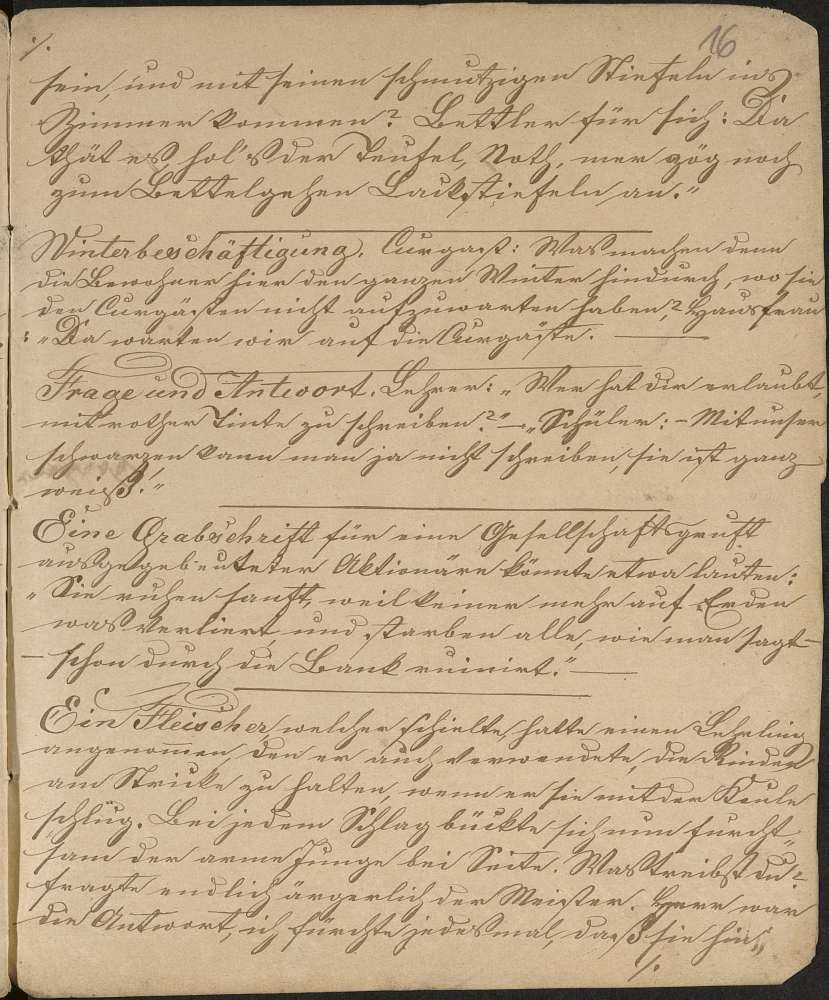 16
./.
sein, und mit seinen schmutzigen Stiefeln ins
Zimmer kommen? Bettler für sich: Da
thät es, hol's der Teufel, Noth, mer zög noch
zum Bettelgehen Lackstiefeln an."
Winterbeschäftigung. Curgast: Was machen denn
die Bewohner hier den ganzen Winter hindurch, wo sie
den Curgästen nicht aufzuwarten haben? Hausfrau
: "Da warten wir auf die Curgäste. —
Frage und Antwort. Lehrer: "Wer hat dir erlaubt,
mit rother Tinte zu schreiben?" – "Schüler: – Mit unser
schwarzen kann man ja nicht schreiben, sie ist ganz
weiß!"
Eine Grabschrift für eine Gesellschaftsgruft
ausgegebeuteter Aktionäre könnte etwa lauten:
"Sie ruhen sanft, weil keiner mehr auf Erden
was verliert, und starben alle, wie man sagt –
– schon durch die Bank ruinirt." —
Ein Fleischer, welcher schielte, hatte einen Lehrling
angenommen, den er auch verwendete, die Rinder
am Stricke zu halten, wenn er sie mit der Keule
schlug. Bei jedem Schlag bückte sich nun furcht„
sam der arme Junge bei Seite. Was treibst du?
fragte endlich ärgerlich der Meister. Herr war
die Antwort, ich fürchte jedesmal, daß sie hin„
./.